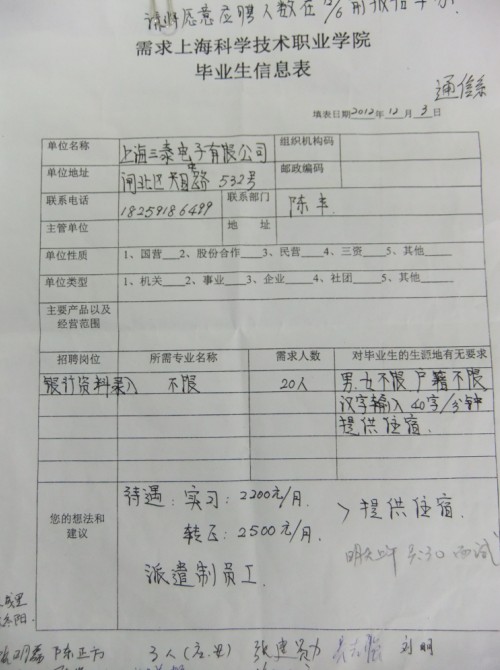 需求上海科学技术职业学院
毕业生信息表
通信系
填表日期2012年12月3日
单位名称 上海三泰电子有限公司 组织机构码
单位地址 闸北区 路532号 邮政编码
联系电话 18259186499 联系部门 陈丰
主管单位 地 址
单位性质 1、国营___2、股份合作___3、民营___4、三资___5、其他___
单位类型 1、机关___2、事业___3、企业___4、社团___5、其他___
主要产品以及
经营范围
招聘岗位 所需专业名称 需求人数 对毕业生的生源地有无要求
银行资料录入 不限 20人 男.女不限 户籍不限
汉字输入 40字/分钟
提供住宿.
您的想法和
建议
待遇:实习:2200元/月.
转正:2500元/月.
>提供住宿.
明天上午 8:30 面试
派遣制员工.
3人
刘明